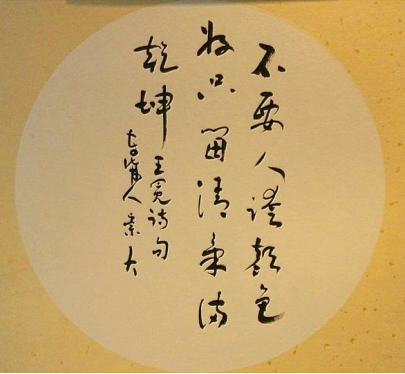 不要人誇顏色
好只留清氣滿
乾坤
王冕詩句
人大